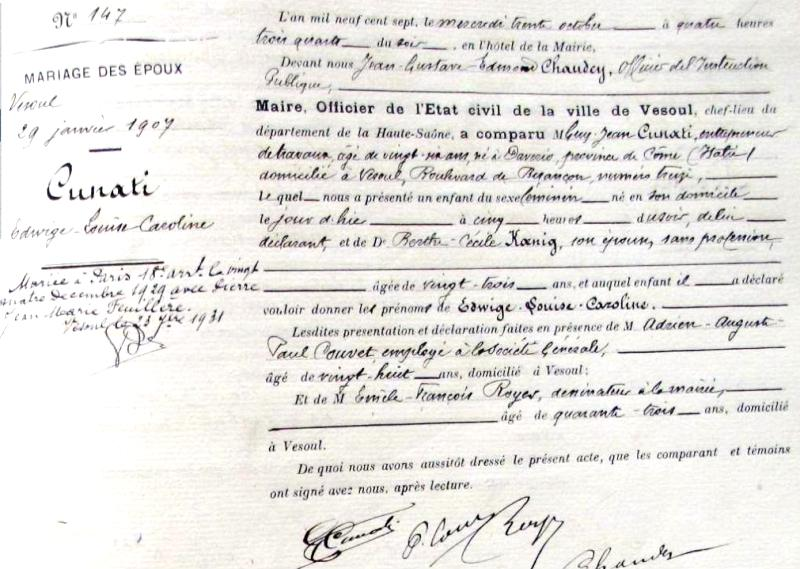 N° 147
MARIAGE DES ÉPOUX
Vesoul
29 janvier 1907
Cunati
Edwige-Louise-Caroline
Mariée à Paris 18e arrt. le vingt
quatre décembre 1929 avec Pierre
Jean-Marie Feuillère.
Vesoul le 23 1931
L'an mil neuf cent sept, le mercredi trente octobre à quatre heures
trois quarts du soir, en l'hôtel de la Mairie,
Devant nous Jean-Gustave-Edmond Chaudey, Officier de l'Instruction
Publique,
Maire, Officier de l'Etat civil de la ville de Vesoul, chef-lieu du
département de la Haute-Saône, a comparu M Guy-Jean Cunati, entrepreneur
de travaux, âgé de vingt-six ans, né à Daverio, province de Côme (Italie)
domicilié à Vesoul, Boulevard de Besançon, numéro treize,
le quel nous a présenté un enfant du sexe féminin né en son domicile
le jour d'hier à cinq heures du soir, de lui
déclarant, et de De Berthe-Cécile Kœnig, son épouse, sans profession,
âgée de vingt-trois ans, et auquel enfant il a déclaré
vouloir donner les prénoms de Edwige-Louise-Caroline.
Lesdites presentation et déclaration faites en présence de M. Adrien-Auguste-
Paul Couvet, employé à la Société Générale,
âgé de vingt-huit ans, domicilié à Vesoul;
Et de M Emile-François Royer, dessinateur à la mairie,
âgé de quarante-trois ans, domicilié
à Vesoul.
De quoi nous avons aussitôt dressé le présent acte, que les comparant et témoins
ont signé avec nous, après lecture.
Cunati P. Couvet Royer
Chaudey